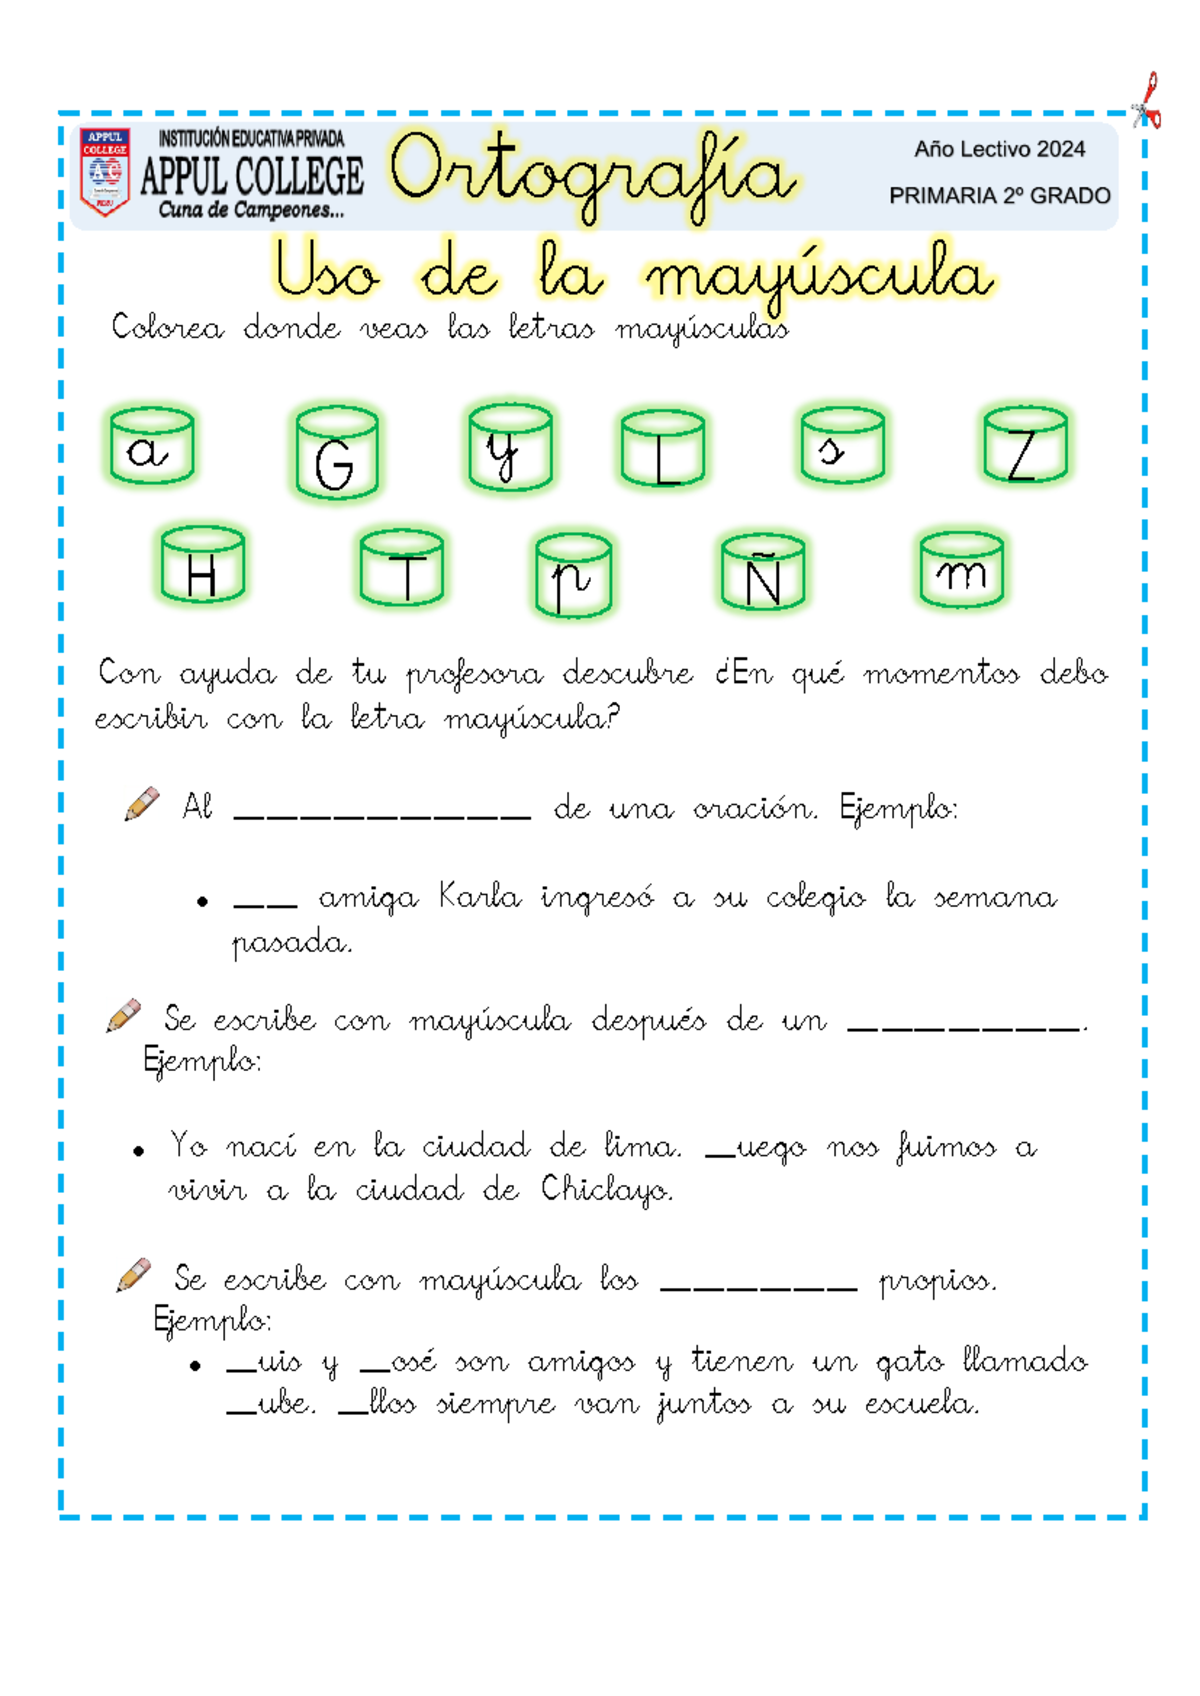 APPUL
COLLEGE
INSTITUCIÓN EDUCATIVA PRIVADA
APPUL COLLEGE
Cuna de Campeones...
Ortografía
Año Lectivo 2024
PRIMARIA 2º GRADO
Uso de la mayúscula
Colorea donde veas las letras mayúsculas
a G y L s Z
H T p Ñ m
Con ayuda de tu profesora descubre ¿En qué momentos debo
escribir con la letra mayúscula?
Al _________ de una oración. Ejemplo:
• __ amiga Karla ingresó a su colegio la semana
pasada.
Se escribe con mayúscula después de un _______.
Ejemplo:
• Yo nací en la ciudad de lima. _uego nos fuimos a
vivir a la ciudad de Chiclayo.
Se escribe con mayúscula los ______ propios.
Ejemplo:
• _uis y _osé son amigos y tienen un gato llamado
_ube. _llos siempre van juntos a su escuela.